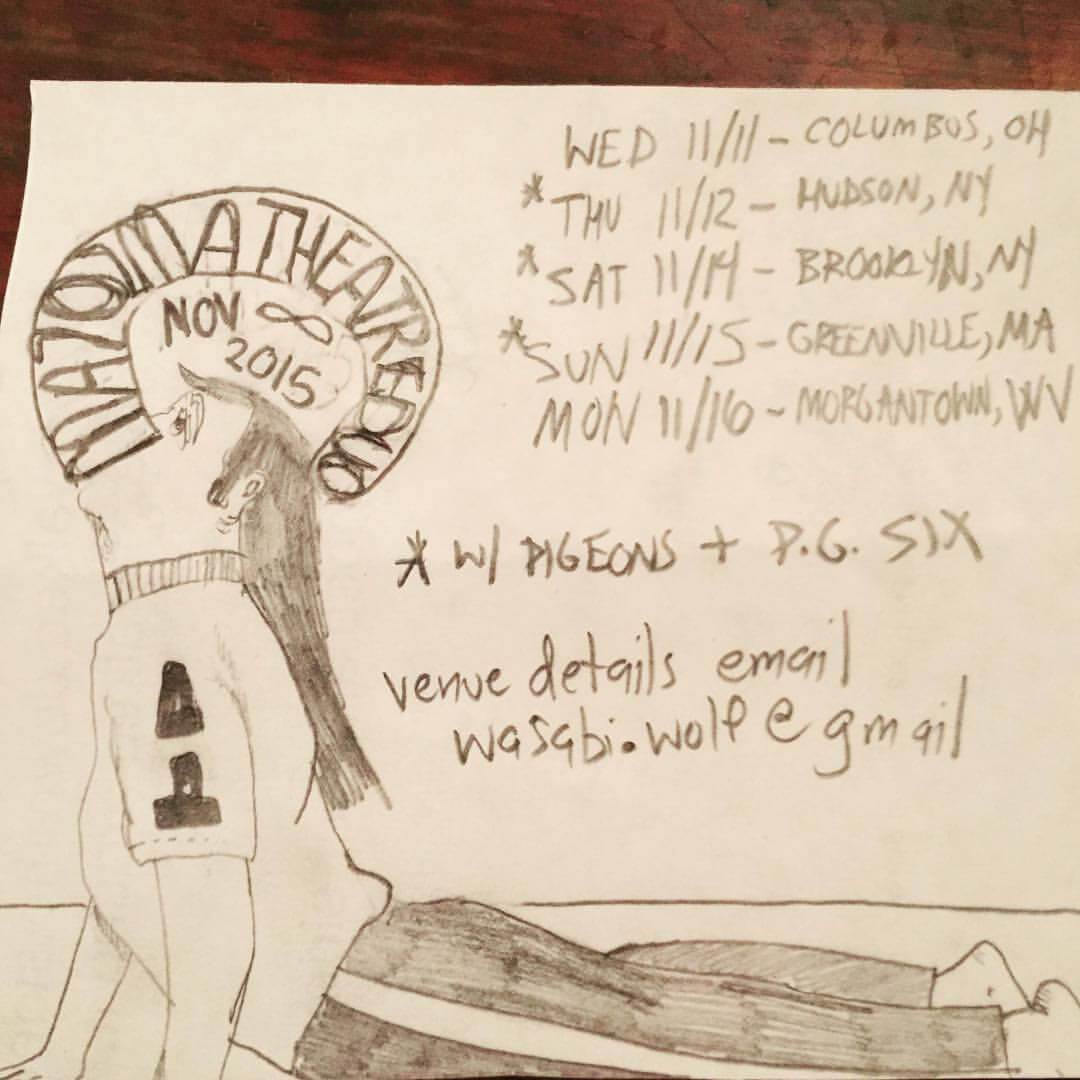 MAJOMA THEATRE DUO
NOV ∞
2015
WED 11/11 - COLUMBUS, OH
* THU 11/12 - HUDSON, NY
* SAT 11/14 - BROOKLYN, NY
* SUN 11/15 - GREENVILLE, MA
MON 11/16 - MORGANTOWN, WV
* W/ PIGEONS + P.G. SIX
venue details email
wasabi.wolf@gmail